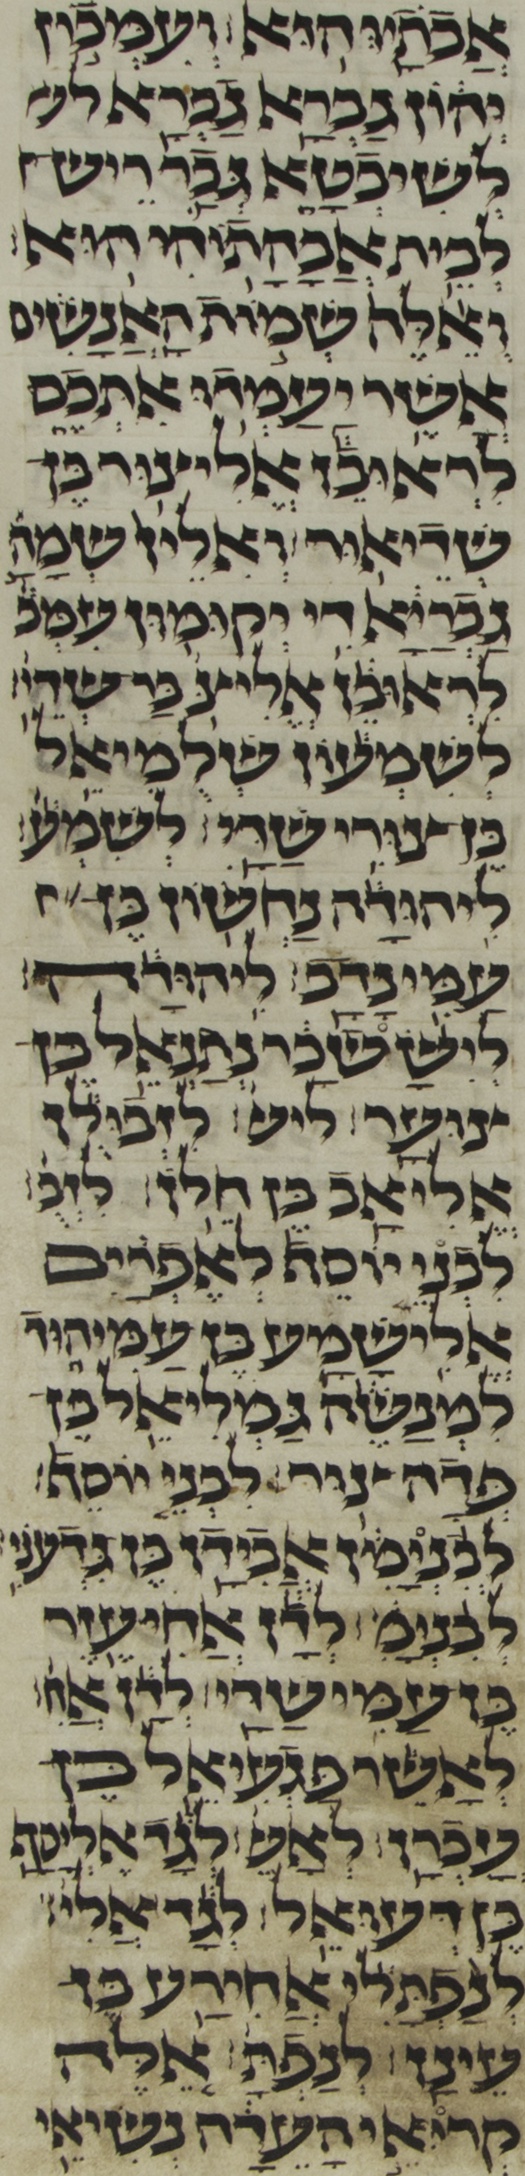 אֲבֹתָיו הוּא׃ ועמכון
יהון גברא גברא לש
לשיבטא גבר ריש
לבית אבהתוהי הוא׃
ואלה שמות האנשים
אשר יעמדו אתכם
לראובן אליצור בן
שדיאור׃ ואלין שמה
גבריא די יקומון עמכ
לראובן אליצ בר שדי׃
לשמעון שלמיאל
בן צורי שדי׃ לשמע׃
ליהודה נחשון בן
עמינדב׃ ליהודה׃
ליששכר נתנאל בן
צוער׃ ליש׃ לזבולן
אליאב בן חלן׃ לזב׃
לבני יוסף לאפרים
אלישמע בן עמיהוד
למנשה גמליאל בן
פדהצור׃ לבני יוסף׃
לבנימן אבידן בן גדעני׃
לבנימ׃ לדן אחיעזר
בן עמי שדי׃ לדן אח׃
לאשר פגעיאל בן
עכרן׃ לאש׃ לגד אליסף
בן דעואל׃ לגד אלי׃
לנפתלי אחירע בן
עינן׃ לנפת׃ אלה
קרואי העדה נשיאי